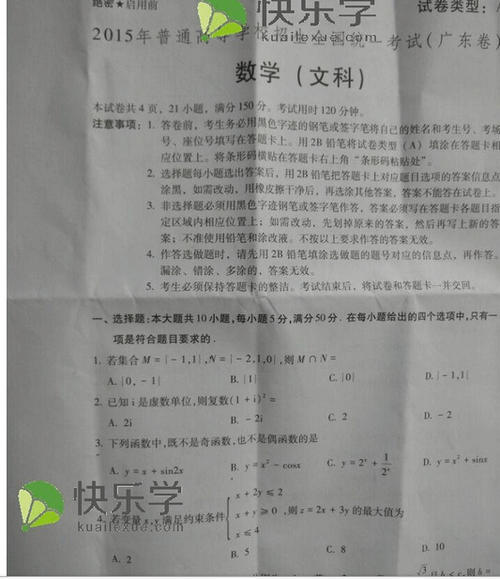 绝密★启用前
快乐学
kuailexue.com
试卷类型：A
2015年普通高等学校招生全国统一考试（广东卷）
数学（文科）
本试卷共4页，21小题，满分150分。考试用时120分钟。
注意事项：1. 答卷前，考生务必用黑色字迹的钢笔或签字笔将自己的姓名和考生号、考场
号、座位号填写在答题卡上。用2B铅笔将试卷类型（A）填涂在答题卡相
应位置上。将条形码横贴在答题卡右上角“条形码粘贴处”。
2. 选择题每小题选出答案后，用2B铅笔把答题卡上对应题目选项的答案信息点
涂黑，如需改动，用橡皮擦干净后，再选涂其他答案，答案不能答在试卷上。
3. 非选择题必须用黑色字迹钢笔或签字笔作答，答案必须写在答题卡各题目指
定区域内相应位置上；如需改动，先划掉原来的答案，然后再写上新的答
案；不准使用铅笔和涂改液。不按以上要求作答的答案无效。
4. 作答选做题时，请先用2B铅笔填涂选做题的题号对应的信息点，再作答。
漏涂、错涂、多涂的，答案无效。
5. 考生必须保持答题卡的整洁。考试结束后，将试卷和答题卡一并交回。
一、选择题：本大题共10小题，每小题5分，满分50分．在每小题给出的四个选项中，只有一
项是符合题目要求的．
1. 若集合M={-1,1}，N={-2,1,0}，则M∩N=
A. {0,-1} B. {1} C. {0} D. {-1,1}
2. 已知i是虚数单位，则复数(1+i)²=
A. 2i B. -2i C. 2 D. -2
3. 下列函数中，既不是奇函数，也不是偶函数的是
A. y=x+sin2x B. y=x²-cosx C. y=2ˣ+1/2ˣ D. y=x²+sinx
快乐学
kuailexue.com
4. 若变量x,y满足约束条件{x+2y≤2 x+y≥0 x≤4，则z=2x+3y的最大值为
A. 2 B. 5 C. 8 D. 10